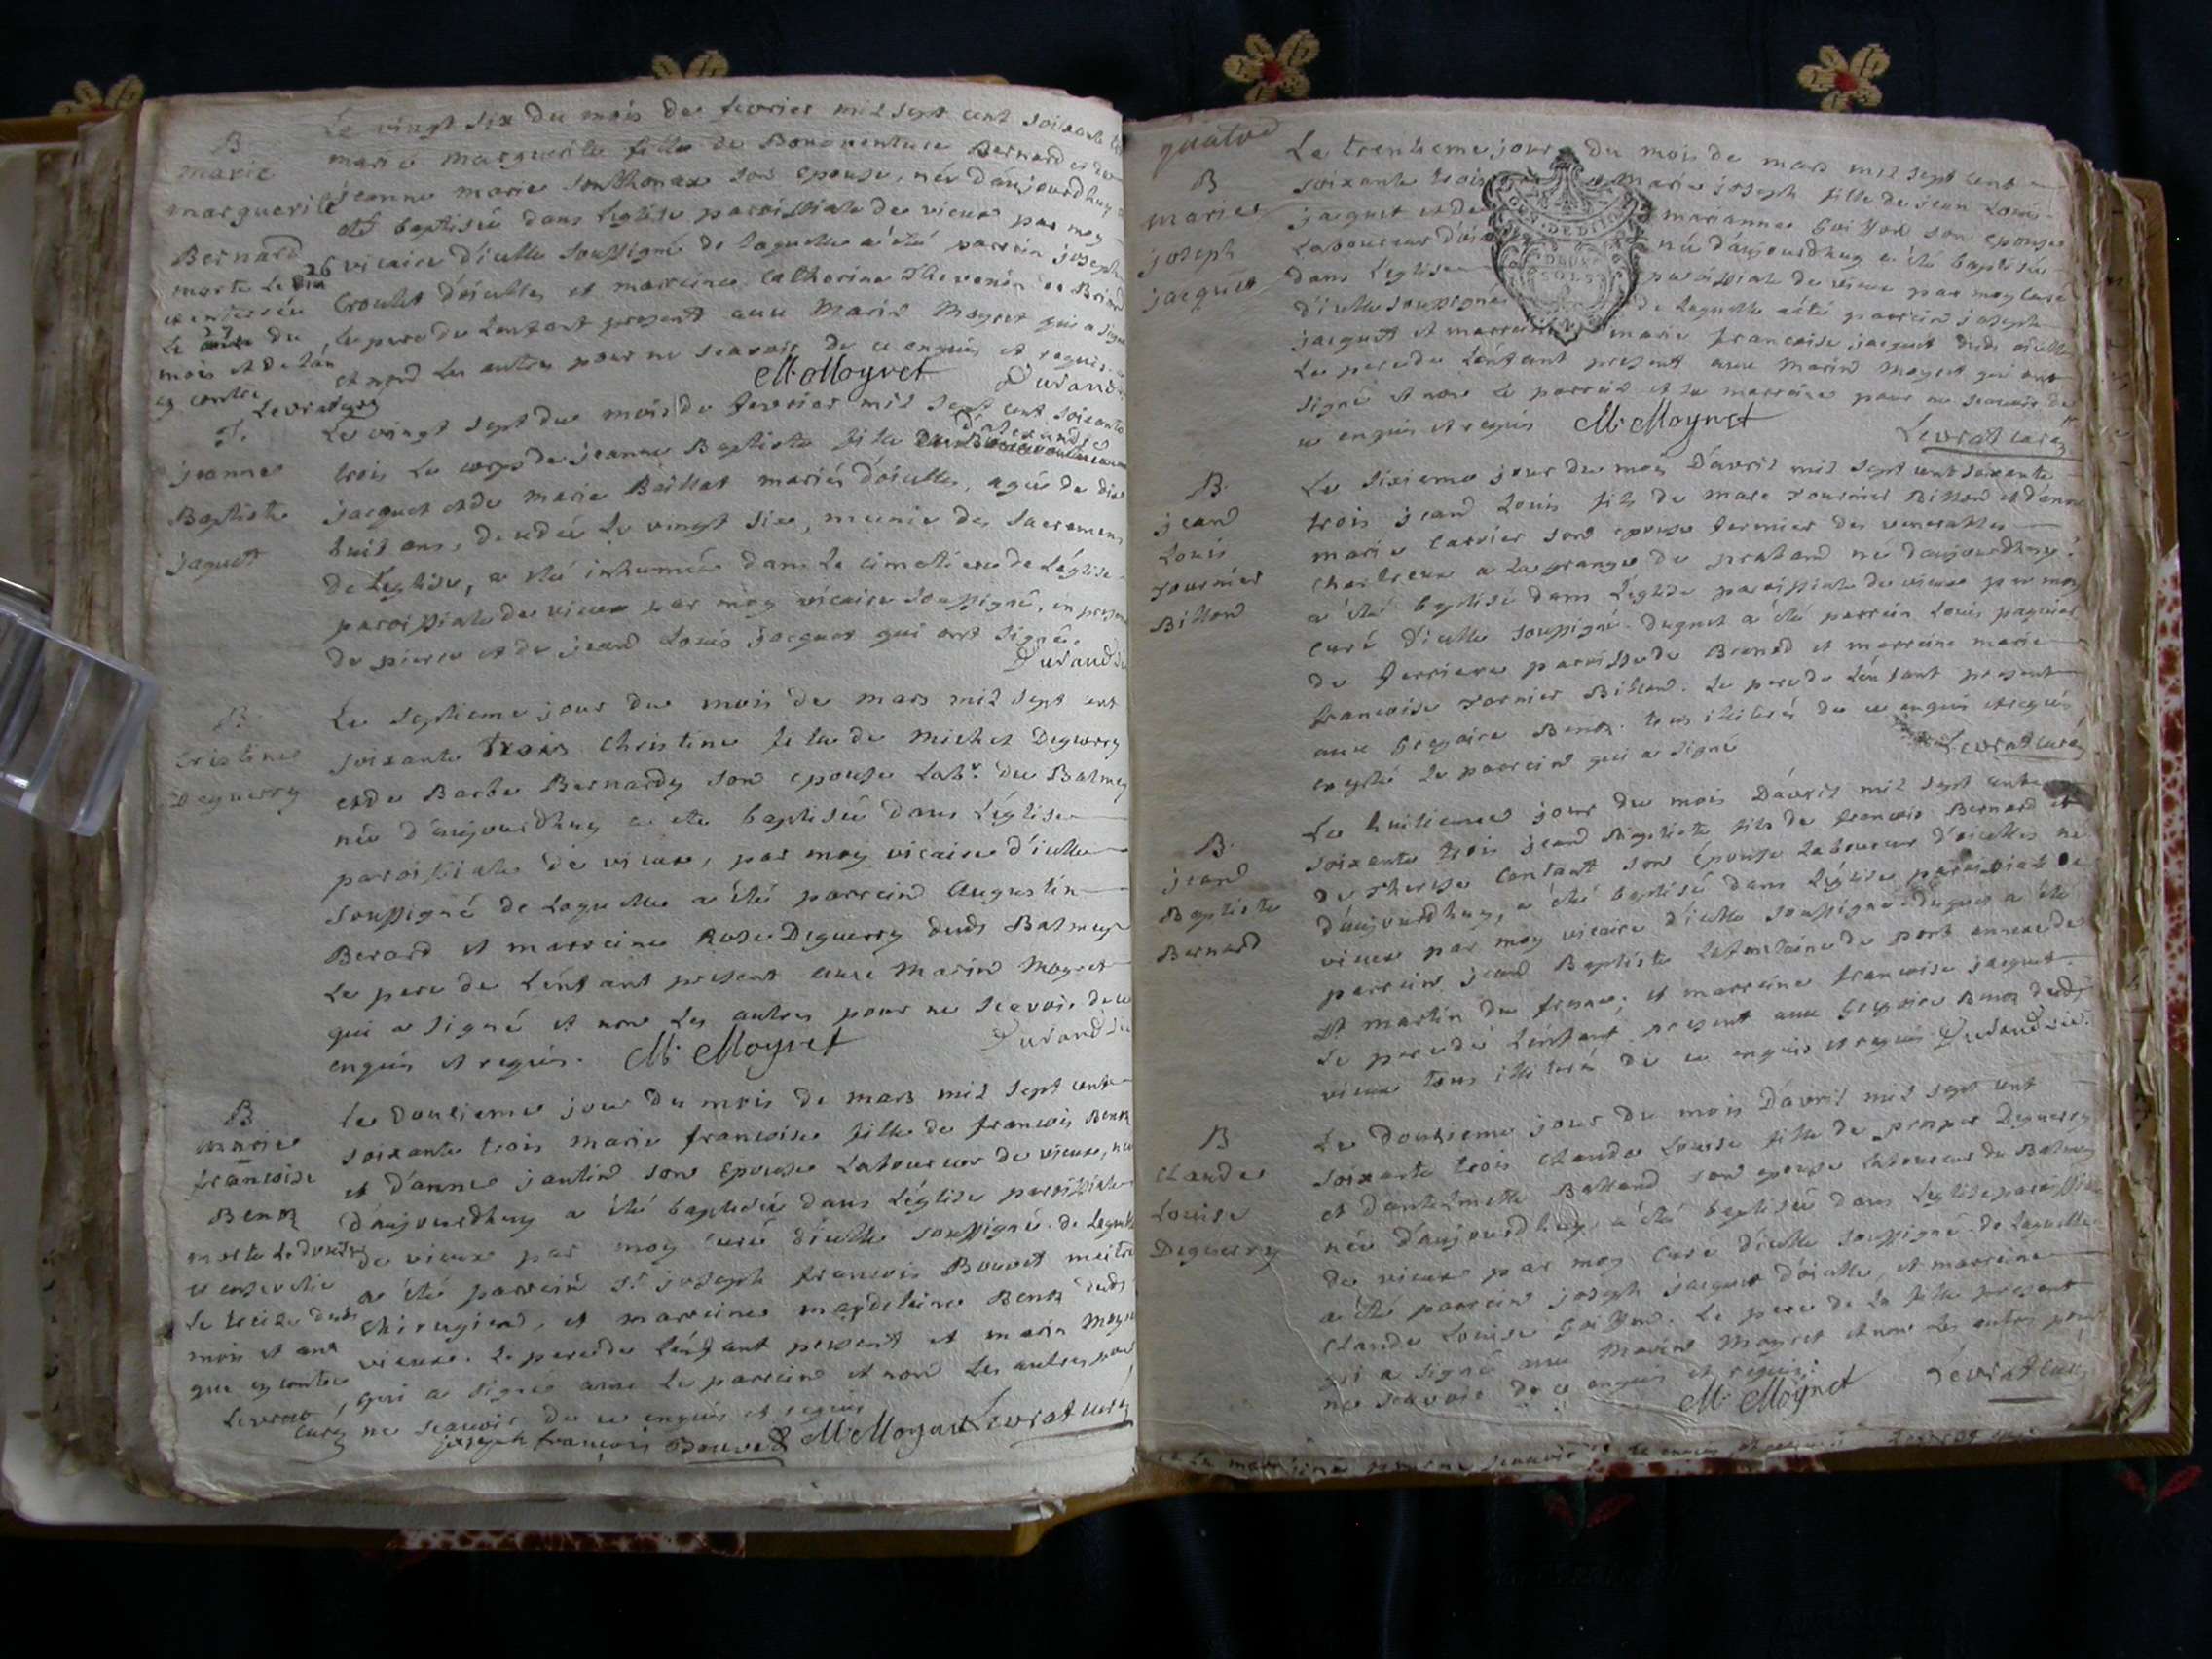 B
marie
marguerite
Bernard
morte le 26
et enterrée
le 27 du
mois et de l'an
cy contre
Levrat curé
Le vingt six du mois de fevrier mil sept cent soixante
marie marguerite fille de Bonaventure Bernard et de
jeanne marie sonthonax son epouse, née d'aujourdhuy
a été baptisée dans L'eglise paroissiale de vieux par moy
vicaire d'icelle soussigné de laquelle a été parrein joseph
Croulet d'oisselles et marreine Catherine Thevenin de Briord
le pere de L'enfant present avec Marin Moynet qui a signé
et non les autres pour ne sçavoir de ce enquis et requis
M. Moynet
Durand
jeanne
Baptiste
jaquet
Le vingt sept du mois de fevrier mil sept cent soixante
trois Le corps de jeanne Baptiste fille
jacquet et de marie Baillat mariés d'oiselles, agée de dix
huit ans, decedée Le vingt six, munie des sacremens
de L'eglise, a été inhumée dans Le cimetiere de L'église
paroissiale de vieux par moy vicaire soussigné, en presence
de pierre et de jean Louis jacquet qui ont signé.
Durand
B.
Cristine
Deguerry
Le septieme jour du mois de mars mil sept cent
soixante trois Christine fille de Michel Deguerry
et de Barbe Bernardy son epouse Labr. du Balmey
née d'aujourdhuy a ete baptisée dans L'église
paroissiale de vieux, par moy vicaire d'icelle
soussigné de Laquelle a été parrein Augustin
Berard et marreine Rose Deguerry dudt Balmey
Le pere de L'enfant present avec Marin Moynet
qui a signé et non Les autres pour ne sçavoir de ce
enquis et requis.
M. Moynet
Durand
B
marie
francoise
Benz
morte le douze
et ensevelie
le treize dudt
mois et an
que cy contre
Levrat
curé
Le douzieme jour du mois de mars mil sept cent
soixante trois marie francoise fille de francois Benz
et d'anne jantin son epouse Laboureur de vieux, née
d'aujourdhuy a été baptisée dans L'église paroissiale
de vieux par moy curé d'icelle soussigné de Laquelle
a été parrein sr. joseph francois Bouvet maitre
chirugien, et marreine magdeleine Benz dudt
vieux. Le pere de L'enfant present et marin Moynet
qui a signé avec Le parrein et non Les autres pour
ne sçavoir de ce enquis et requis
joseph françois Bouvet M. Moynet Levrat curé
quatre
B
marie
joseph
jacquet
Le trentieme jour du mois de mars mil sept cent
soixante trois marie joseph fille de jean Louis
jacquet et de marianne Goiffon son epouse
Laboureur d'oiselle née d'aujourdhuy a été baptisée
dans L'eglise paroissiale de vieux par moy curé
d'icelle soussigné de Laquelle a été parrein joseph
jacquet et marreine marie francoise jacquet dudt oiselles
Le pere de L'enfant present avec Marin Moynet qui ont
signé et non Le parrein et La marreine pour ne sçavoir de
ce enquis et requis
M. Moynet
Levrat curé
GEN. DE DIJON
DEUX
SOLS
B.
jean
Louis
Tournier
Billond
Le sixieme jour du moy d'avril mil sept cent soixante
trois jean Louis fils de marc Tournier Billond et d'anne
marie Carrier son epouse fermier des venerables
Chartreux a La grange de praland né d'aujourdhuy
a été baptisé dans L'eglise paroissiale de vieux par moy
curé d'icelle soussigné duquel a été parrein Louis paquier
de ferriere paroisse de Brenod et marreine marie
francoise Tornier Billond. Le pere de L'enfant present
avec Gregoire Benz. tous illiterés de ce enquis et requis
excepté Le parrein qui a signé
Levrat curé
B.
jean
Baptiste
Bernard
Le huitieme jour du mois d'avril mil sept cent
soixante trois jean Baptiste fils de francois Bernard et
de Therese Contant son épouse Laboureur d'oiselles né
d'aujourdhuy, a été baptisé dans L'église paroissiale de
vieux par moy vicaire d'icelle soussigné duquel a été
parrein jean Baptiste Lafontaine du port annexe de
st martin du fresne, et marreine francoise jacquet.
Le pere de L'enfant present avec Gregoire Benz dudt
vieux tous illiterés de ce enquis et requis Durand vic.
B
Claude
Louise
Deguerry
Le douzieme jour du mois d'avril mil sept cent
soixante trois Claude Louise fille de prosper Deguerry
et d'anthelmette Balland son epouse Laboureur du Balmey
née d'aujourdhuy a été baptisée dans L'eglise paroissiale
de vieux par moy curé d'icelle soussigné de Laquelle
a été parrein joseph jacquet d'oiselle, et marreine
Claude Louise Goiffon. Le pere de la fille present
qui a signé avec Marin Moynet et non Les autres pour
ne sçavoir de ce enquis et requis.
M. Moynet
Levrat curé
et La marreine pour ne sçavoir de ce enquis et requis Levrat curé